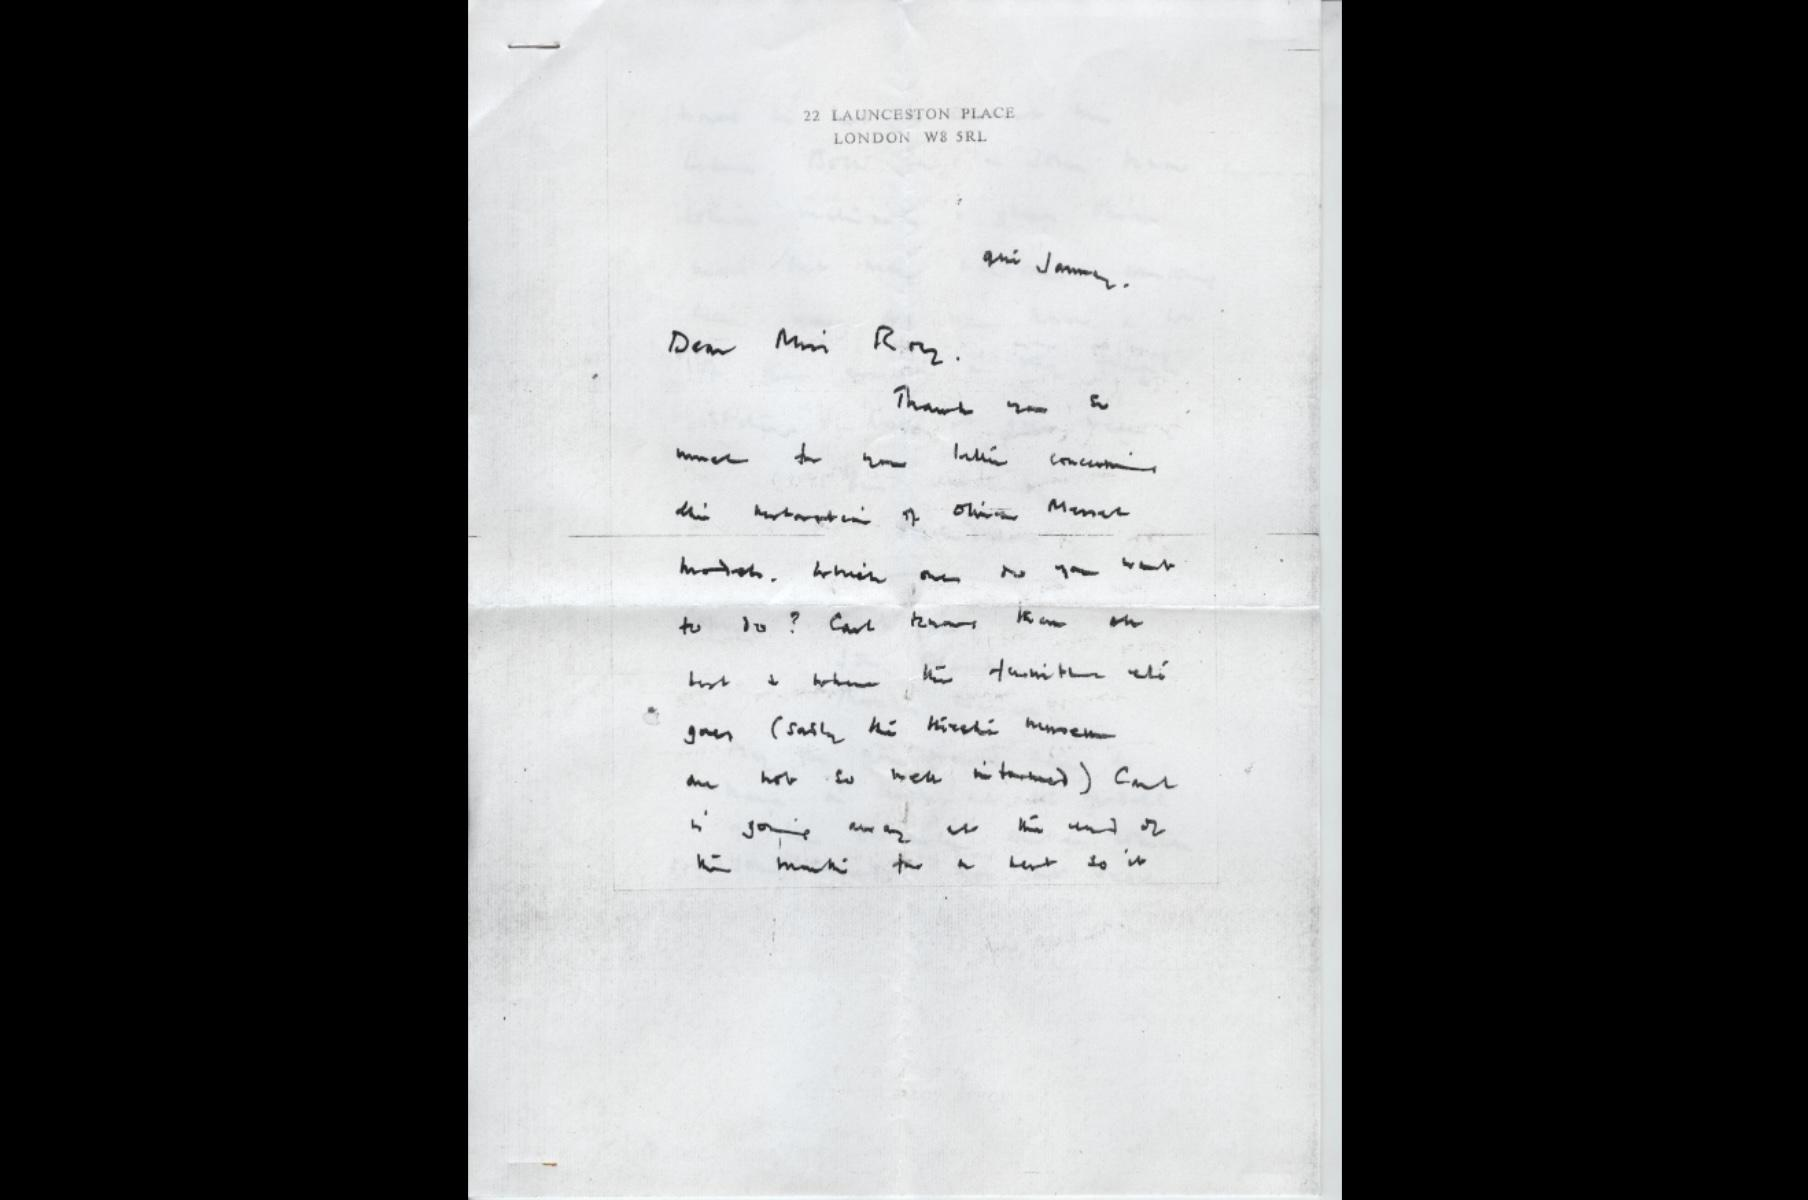 22 LAUNCESTON PLACE
LONDON W8 5RL
9th January.
Dear Miss Rory.
Thank you so
much for your letter concerning
the restoration of Oliver Messel
models. Which ones do you want
to do? Carl knows them all
best & where the furniture etc
goes (sadly the Theatre Museum
are not so well informed) Carl
is going away at the end of
the month for a rest so it